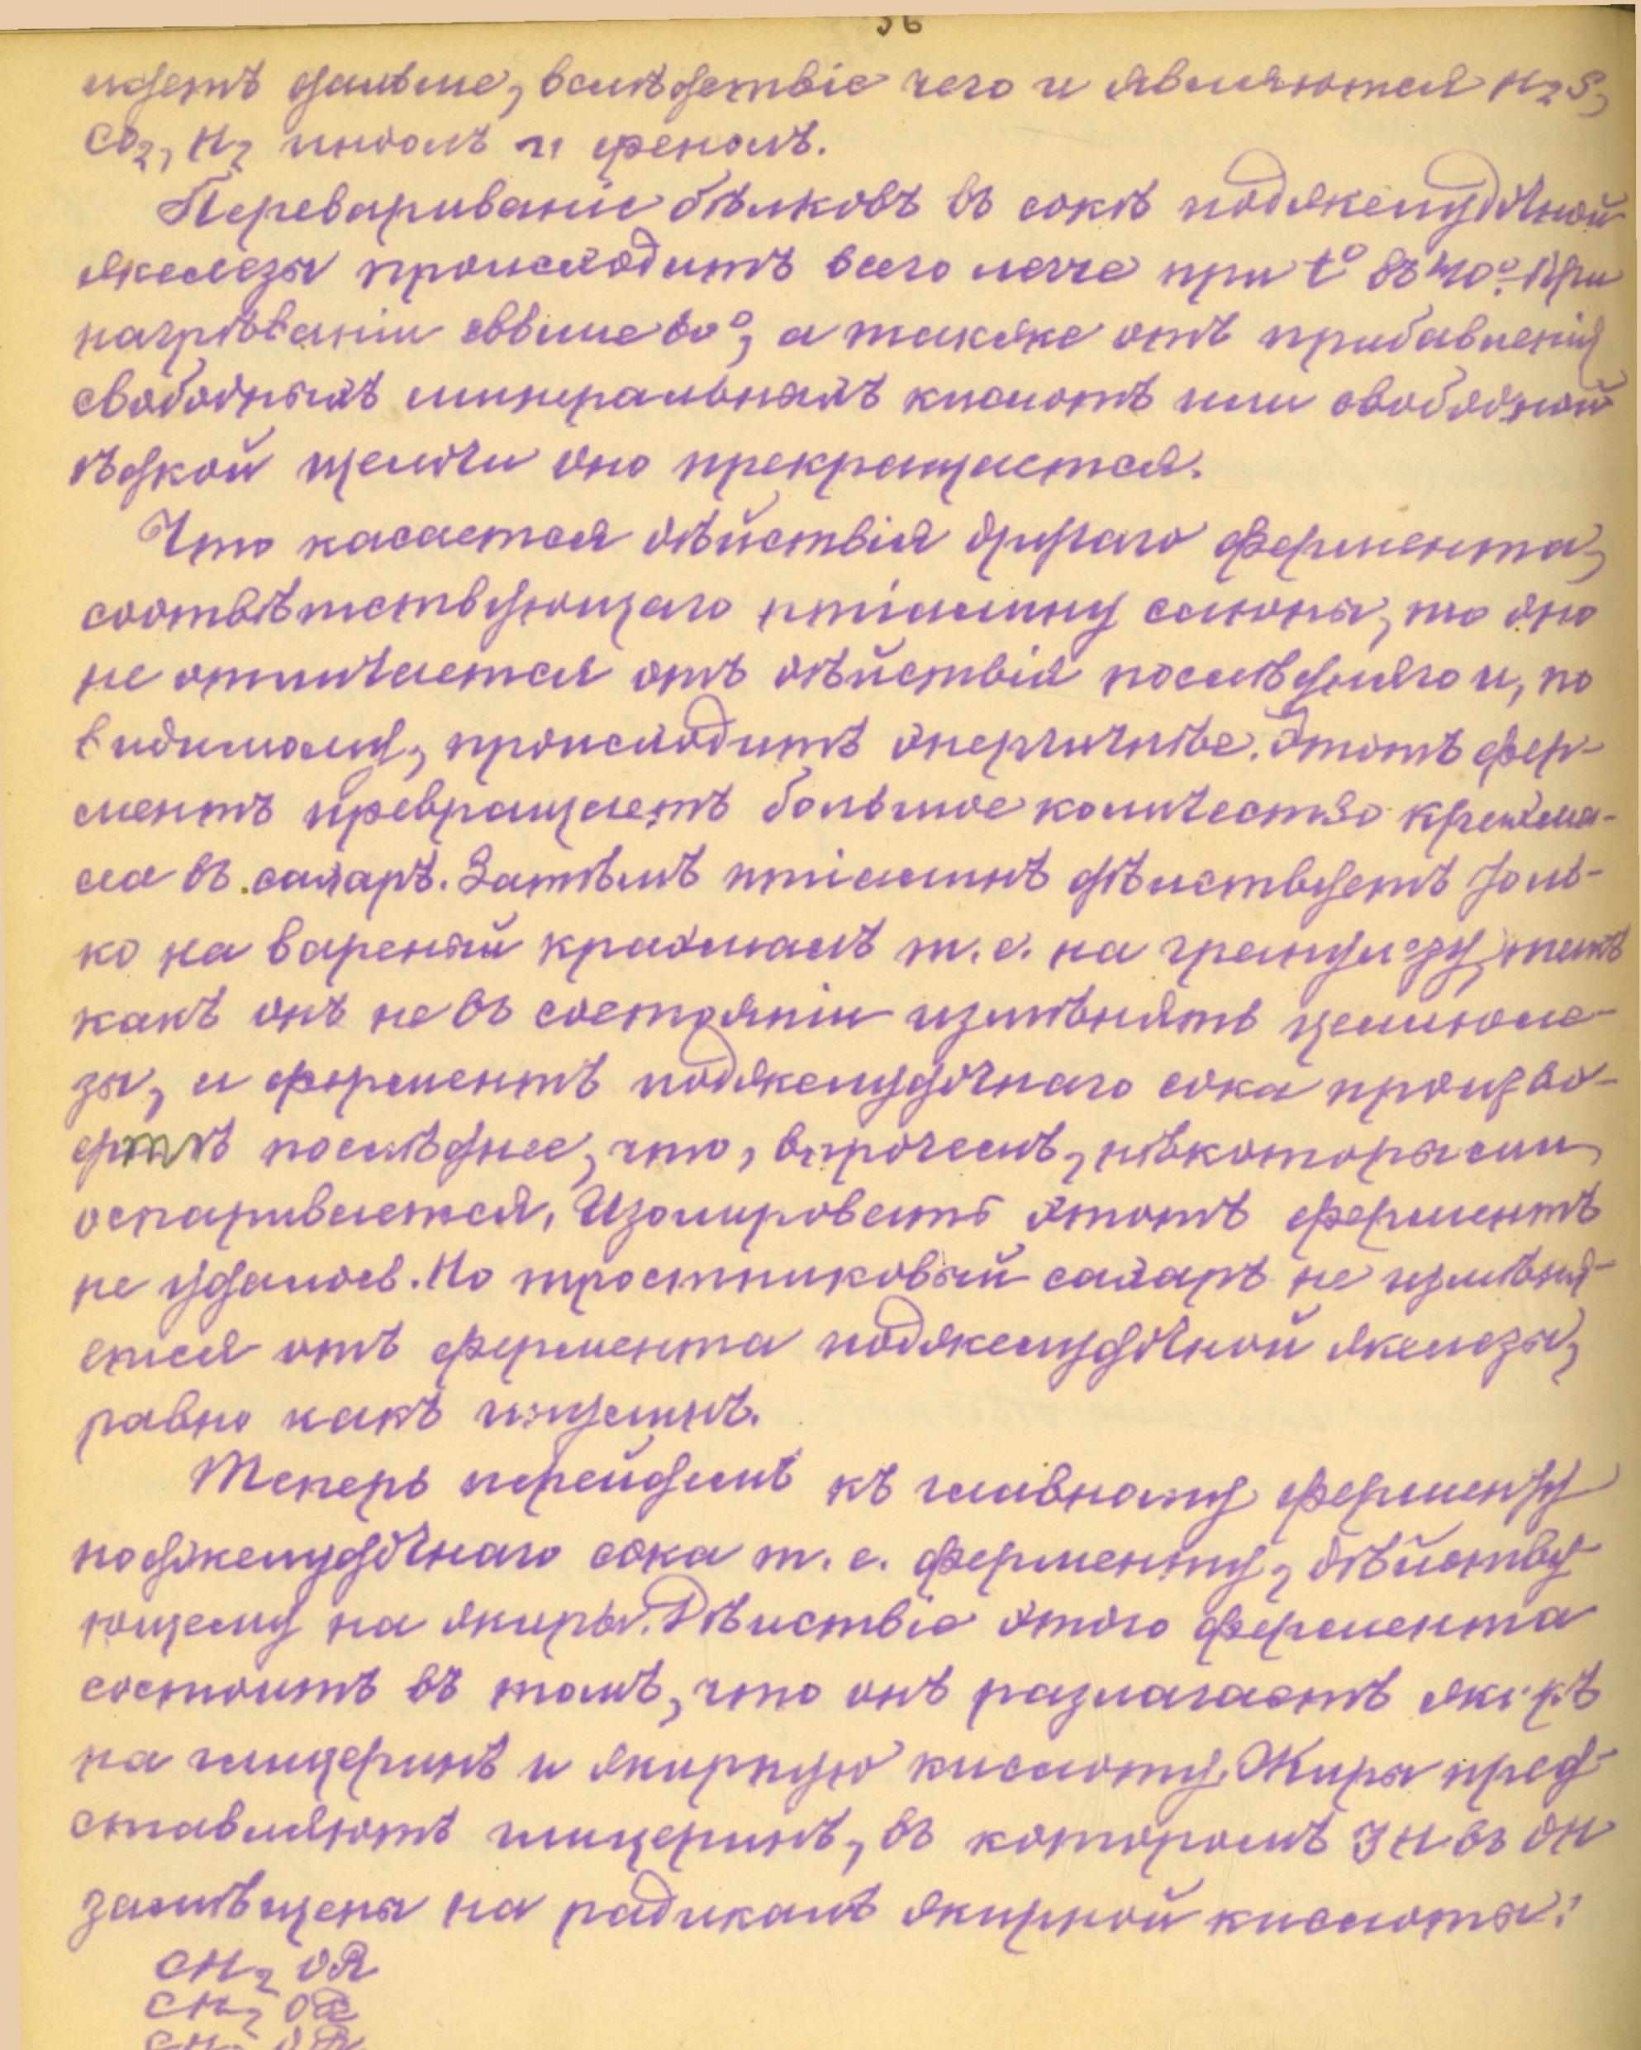 36
идетъ дальше, вслѣдствіе чего и являются H2S,
CO2, H2 индолъ и фенолъ.
Перевариваніе бѣлковъ въ сокѣ поджелудочной
железы происходитъ всего легче при t° въ 40°. При
нагрѣваніи свыше 60°, а также отъ прибавленія
свободныхъ минеральныхъ кислотъ или свободной
ѣдкой щелочи оно прекращается.
Что касается дѣйствія другаго фермента,
соотвѣтствующаго птіалину слюны, то оно
не отличается отъ дѣйствія послѣдняго и, по
видимому, происходитъ энергичнѣе. Этотъ фер-
ментъ превращаетъ большое количество крахма-
ла въ сахаръ. Затѣмъ птіалинъ дѣйствуетъ толь-
ко на вареный крахмалъ т. е. на гранулезу, такъ
какъ онъ не въ состояніи измѣнять целлюло-
зы, и ферментъ поджелудочнаго сока произво-
дитъ послѣднее, что, впрочемъ, нѣкоторыми
оспаривается. Изолировать этотъ ферментъ
не удалось. Но тростниковый сахаръ не измѣня-
ется отъ фермента поджелудочной железы,
равно какъ инулинъ.
Теперь перейдемъ къ главному ферменту
поджелудочнаго сока т. е. ферменту, дѣйству-
ющему на жиры. Дѣйствіе этого фермента
состоитъ въ томъ, что онъ разлагаетъ жиръ
на глицеринъ и жирную кислоту. Жиры пред-
ставляютъ глицеринъ, въ которомъ 3 H въ OH
замѣщены на радикалъ жирной кислоты:
CH2 OR
CH2 OR
CH2 OR